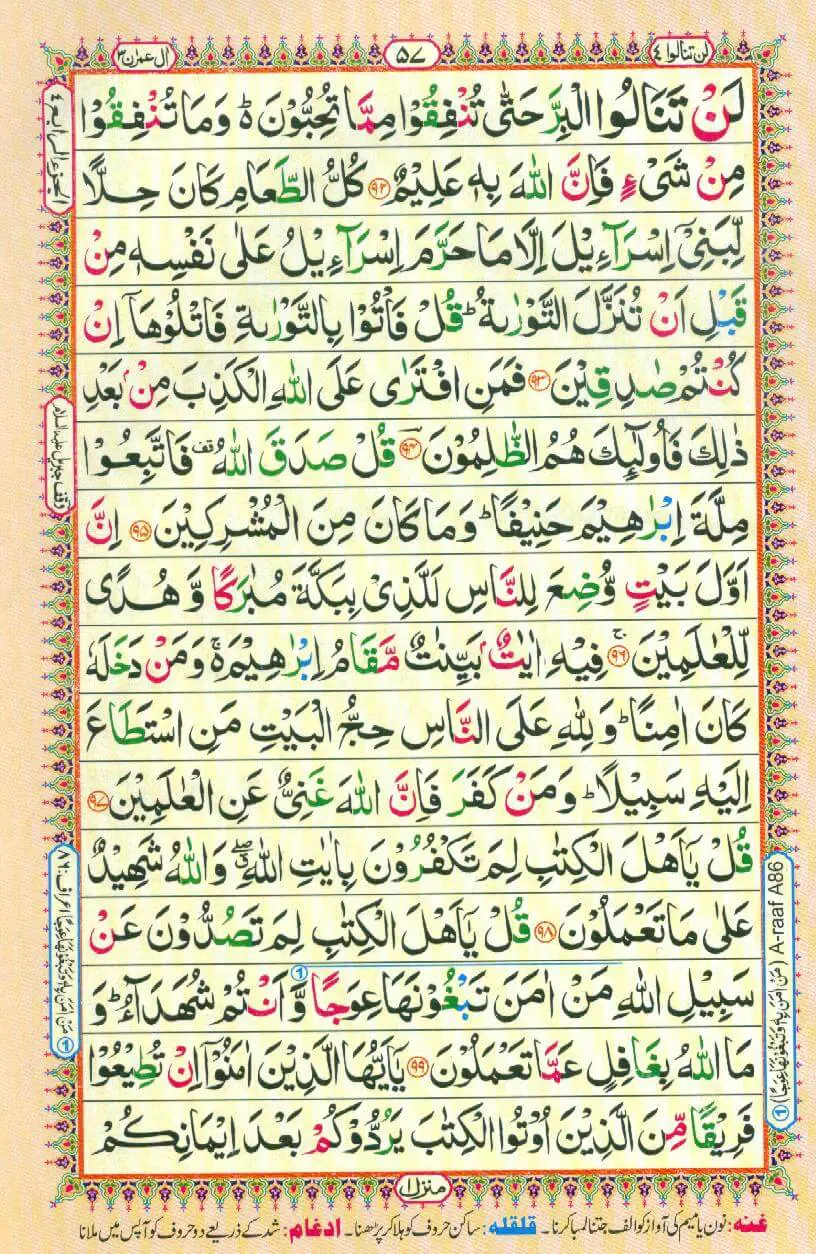 لن تنالوا ٤
٥٧
اٰل عمرٰن ٣
لَنْ تَنَالُوا الْبِرَّ حَتّٰى تُنْفِقُوْا مِمَّا تُحِبُّوْنَ ؕ۬ وَمَا تُنْفِقُوْا
مِنْ شَیْءٍ فَاِنَّ اللّٰهَ بِهٖ عَلِیْمٌ ﴿۹۲﴾ كُلُّ الطَّعَامِ كَانَ حِلًّا
لِّبَنِیْۤ اِسْرَآءِیْلَ اِلَّا مَا حَرَّمَ اِسْرَآءِیْلُ عَلٰى نَفْسِهٖ مِنْ
قَبْلِ اَنْ تُنَزَّلَ التَّوْرٰىةُ ؕ قُلْ فَاْتُوْا بِالتَّوْرٰىةِ فَاتْلُوْهَاۤ اِنْ
كُنْتُمْ صٰدِقِیْنَ ﴿۹۳﴾ فَمَنِ افْتَرٰى عَلَى اللّٰهِ الْكَذِبَ مِنْۢ بَعْدِ
ذٰلِكَ فَاُولٰٓىِٕكَ هُمُ الظّٰلِمُوْنَ ﴿۹۴﴾ قُلْ صَدَقَ اللّٰهُ ۫ فَاتَّبِعُوْا
مِلَّةَ اِبْرٰهِیْمَ حَنِیْفًا ؕ وَمَا كَانَ مِنَ الْمُشْرِكِیْنَ ﴿۹۵﴾ اِنَّ
اَوَّلَ بَیْتٍ وُّضِعَ لِلنَّاسِ لَلَّذِیْ بِبَكَّةَ مُبٰرَكًا وَّ هُدًی
لِّلْعٰلَمِیْنَ ﴿۹۶﴾ۚ فِیْهِ اٰیٰتٌۢ بَیِّنٰتٌ مَّقَامُ اِبْرٰهِیْمَ ۬ۚ وَمَنْ دَخَلَهٗ
كَانَ اٰمِنًا ؕ وَلِلّٰهِ عَلَى النَّاسِ حِجُّ الْبَیْتِ مَنِ اسْتَطَاعَ
اِلَیْهِ سَبِیْلًا ؕ وَمَنْ كَفَرَ فَاِنَّ اللّٰهَ غَنِیٌّ عَنِ الْعٰلَمِیْنَ ﴿۹۷﴾
قُلْ یٰۤاَهْلَ الْكِتٰبِ لِمَ تَكْفُرُوْنَ بِاٰیٰتِ اللّٰهِ ۖۗ وَاللّٰهُ شَهِیْدٌ
عَلٰى مَا تَعْمَلُوْنَ ﴿۹۸﴾ قُلْ یٰۤاَهْلَ الْكِتٰبِ لِمَ تَصُدُّوْنَ عَنْ
سَبِیْلِ اللّٰهِ مَنْ اٰمَنَ تَبْغُوْنَهَا عِوَجًا وَّ اَنْتُمْ شُهَدَآءُ ؕ وَ
مَا اللّٰهُ بِغَافِلٍ عَمَّا تَعْمَلُوْنَ ﴿۹۹﴾ یٰۤاَیُّهَا الَّذِیْنَ اٰمَنُوْۤا اِنْ تُطِیْعُوْا
فَرِیْقًا مِّنَ الَّذِیْنَ اُوْتُوا الْكِتٰبَ یَرُدُّوْكُمْ بَعْدَ اِیْمَانِكُمْ
الجزء الرابع ٤
وقف جبریل علیہ السلام
① مَنْ اٰمَنَ بِهٖ وَتَبْغُوْنَهَا عِوَجًا اعراف: ۸۶
① (مَنْ اٰمَنَ بِهٖ وَتَبْغُوْنَهَا عِوَجًا) A-raaf A86
منزل ۱
غنہ: نون یا میم کی آواز کو الف جتنا لمبا کرنا۔ قلقلہ: ساکن حروف کو ہلا کر پڑھنا۔ ادغام: شد کے ذریعے دو حروف کو آپس میں ملانا